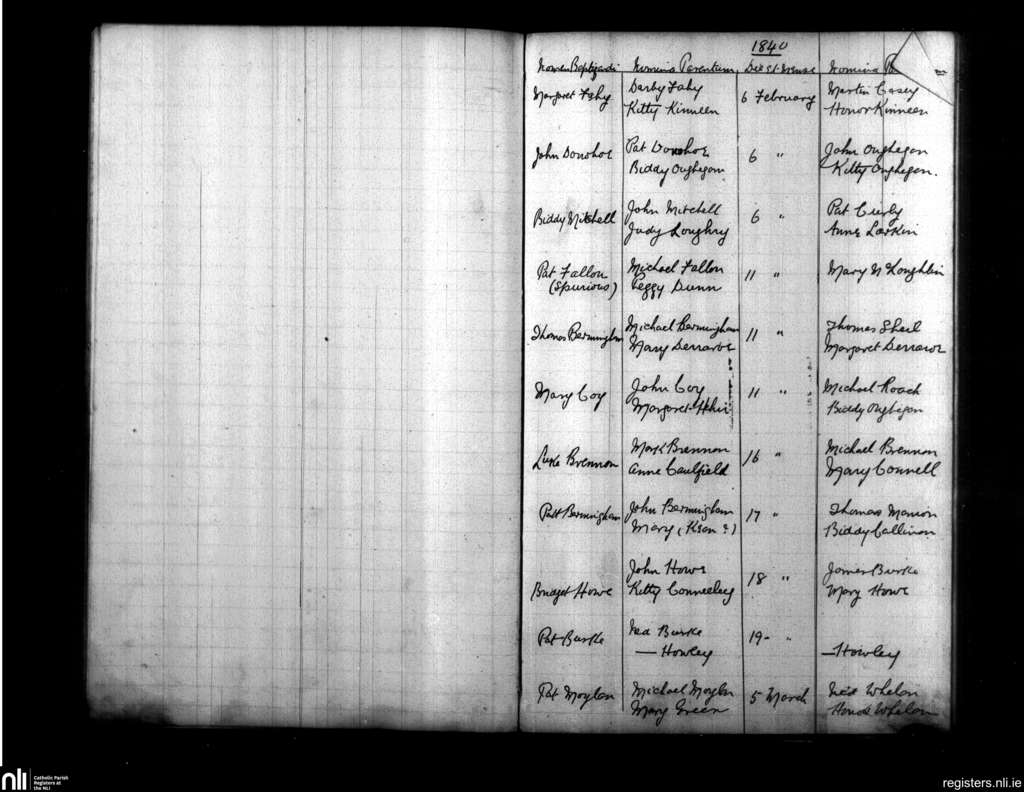 1840
Nomen Baptizandi Nomina Parentum Dies et Mense Nomina
Darby Fahy Martin Casey
Margaret Fahy 6 February
Kitty Kinneen Honor Kinneen
Pat Donohoe John Oughegan
John Donohoe 6 "
Biddy Oughegan Kitty Oughegan.
John Mitchell Pat Curly
Biddy Mitchell 6 "
Judy Loughry Anne Larkin
Pat Fallon Michael Fallon 11 " Mary McLoughlin
(Spurious) Peggy Dunn
Michael Bermingham Thomas Sheil
Thomas Bermingham 11 "
Mary Derrane Margaret Derrane
John Coy Michael Roach
Mary Coy 11 "
Margaret Biddy Oughegan
Mark Brennan Michael Brennan
Luke Brennan 16 "
Anne Caulfield Mary Connell
John Bermingham Thomas Mannion
Patt Bermingham 17 "
Mary (Kean?) Biddy Callinan
John Howe James Burke
Bridget Howe 18 "
Kitty Conneeley Mary Howe
Ned Burke
Pat Burke 19 - "
— Howley — Howley
Pat Moylan Michael Moylan 5 March Ned Whelan
Mary Green Honor Whelan
nli
Catholic Parish
Registers at
the NLI
registers.nli.ie